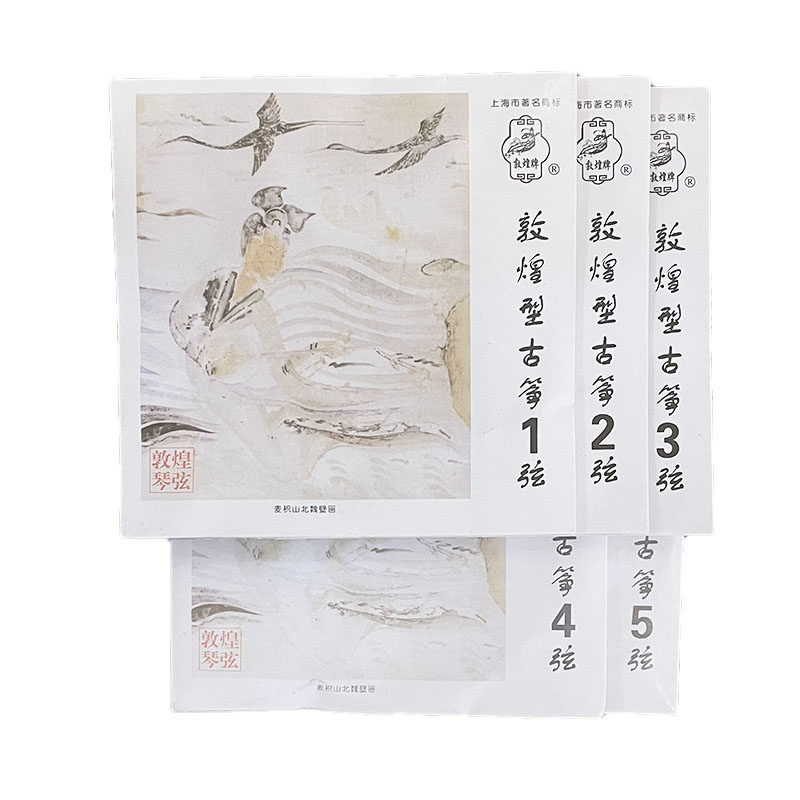 上海市著名商标
敦煌牌
®
敦煌型古筝1弦
敦煌
琴弦
麦积山北魏壁画
海市著名商标
敦煌牌
®
敦煌型古筝2弦
市著名商标
敦煌牌
®
敦煌型古筝3弦
古筝4弦
敦煌
琴弦
麦积山北魏壁画
古筝5弦